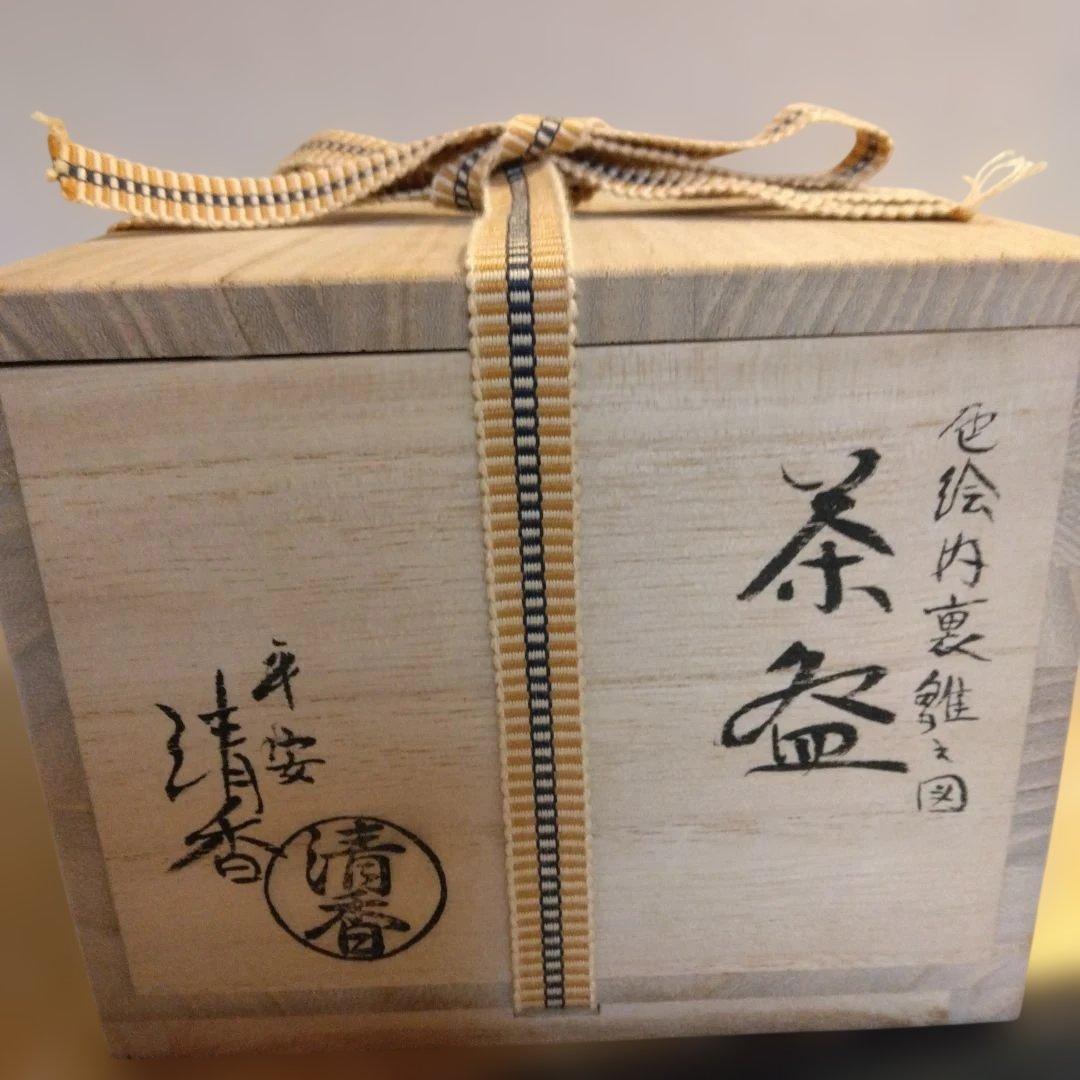 色絵内裏雛之図
茶盌
平安
清香
清香